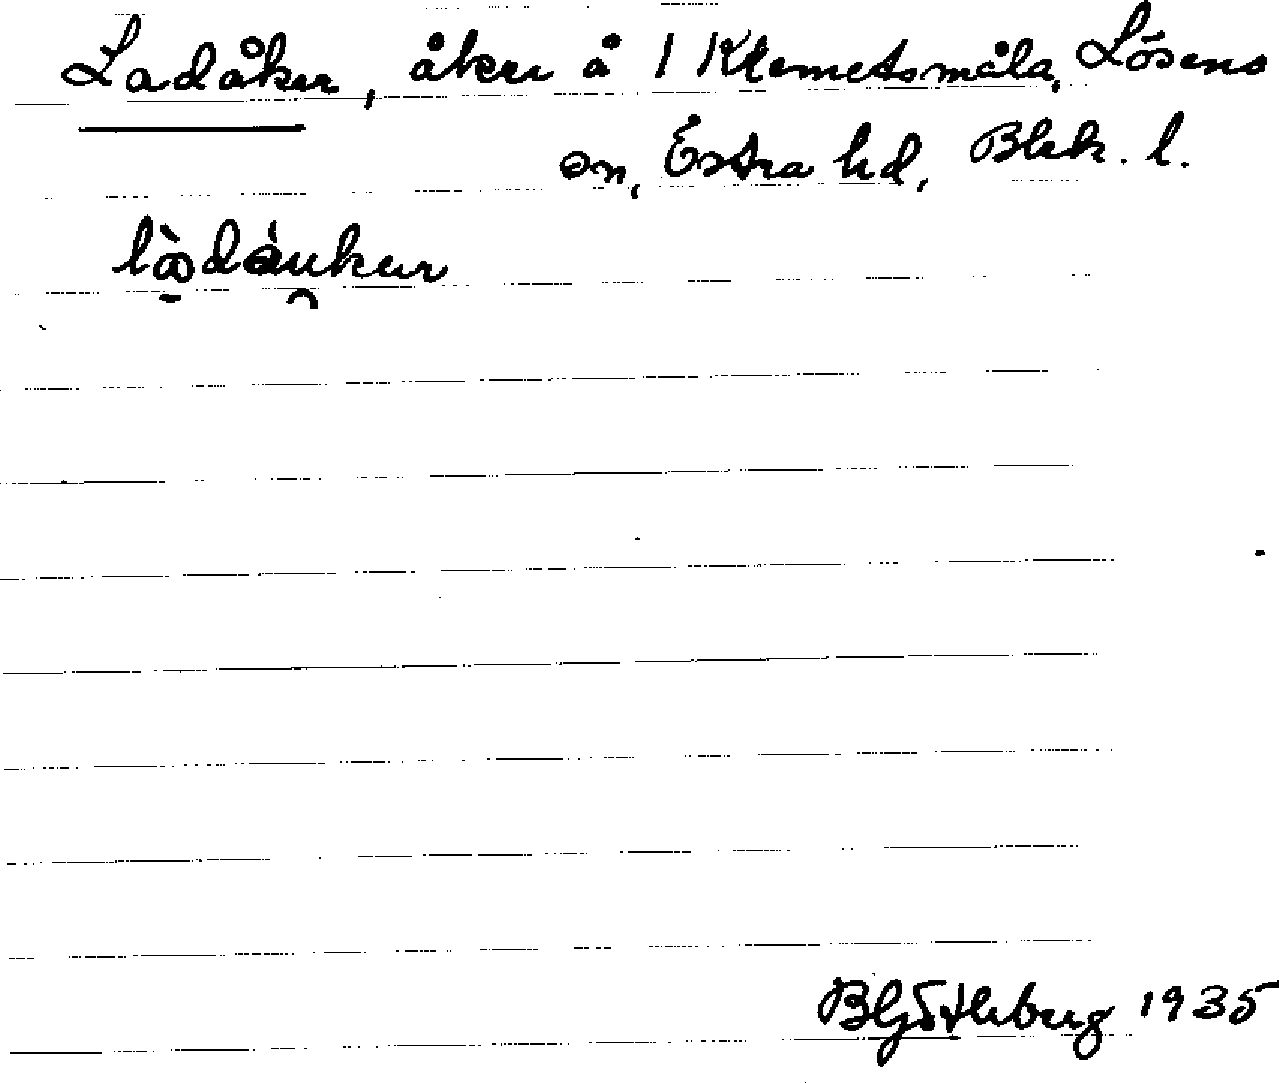 Ladåker, åker å 1 Klemetsmåla, Lösens
sn, Östra hd, Blek. l.
B Götleborg 1935